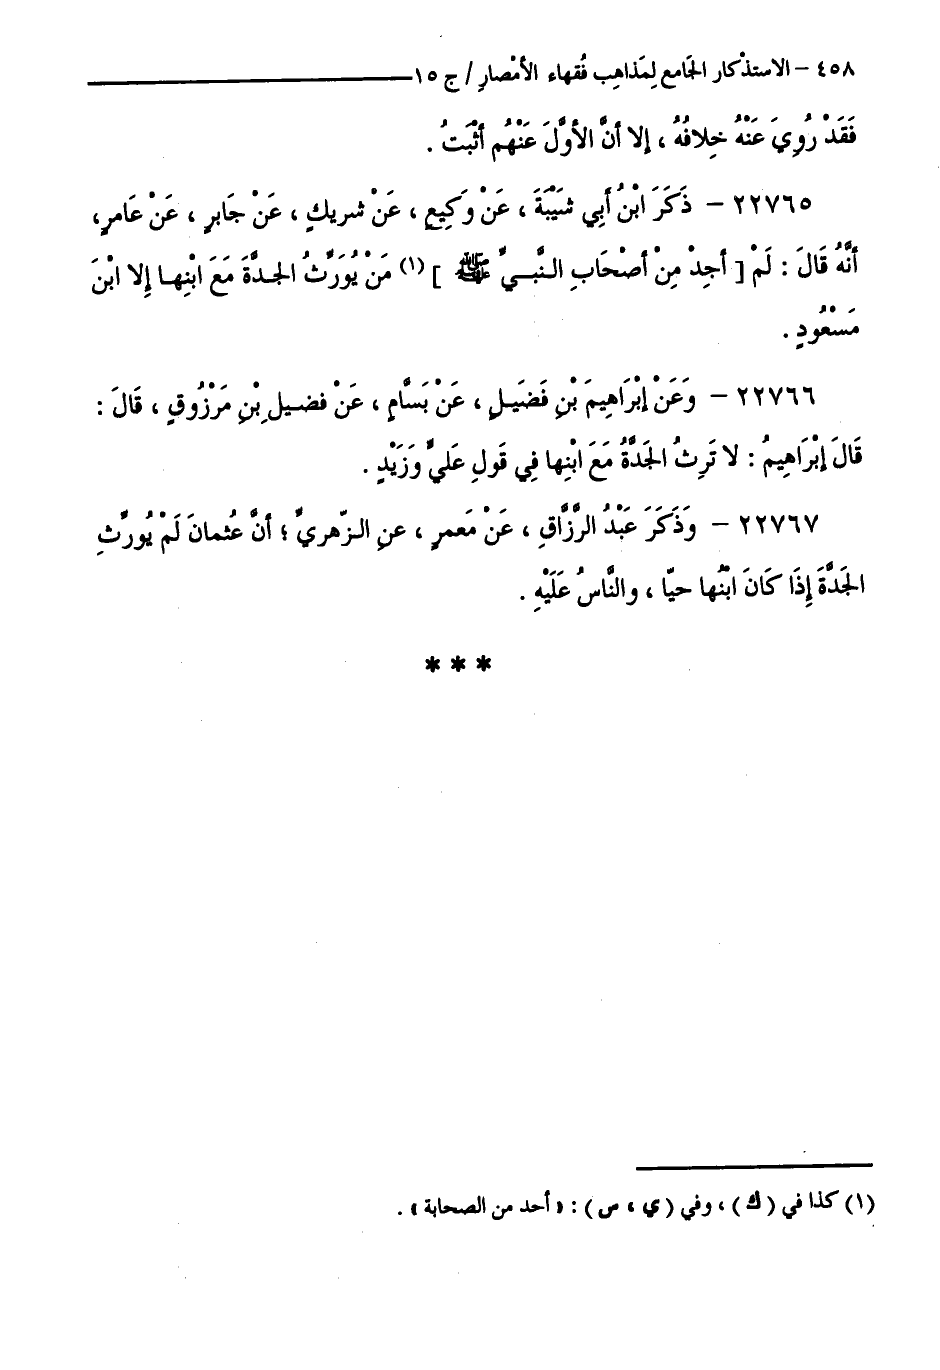 ٤٥٨ – الاستذْكار الجَامع لِمَذاهِب فُقهاء الأمْصارِ / ج ١٥
فَقَدْ رُوِيَ عَنْهُ خِلافُهُ ، إلا أنَّ الأوَّلَ عَنْهُم أثْبَتُ .
٢٢٧٦٥ – ذَكَرَ ابْنُ أبِي شَيْبَةَ ، عَنْ وَكِيعٍ ، عَنْ شريكٍ ، عَنْ جَابرٍ ، عَنْ عَامرٍ ،
أنَّهُ قَالَ : لَمْ [ أجِدْ مِنْ أصْحَابِ النَّبيِّ ﷺ ] (١) مَنْ يُوَرِّثُ الجدَّةَ مَعَ ابْنِها إِلا ابْنَ
مَسْعُودٍ .
٢٢٧٦٦ – وَعَنْ إبْرَاهِيمَ بْنِ فَضَيلٍ ، عَنْ بَسَّامٍ ، عَنْ فضيلِ بْنِ مَرْزُوقٍ ، قَالَ :
قَالَ إبْرَاهِيمُ : لا تَرِثُ الجَدَّةُ مَعَ ابْنِها فِي قَولِ عَليٍّ وَزَيْدٍ .
٢٢٧٦٧ – وَذَكَرَ عَبْدُ الرَّزَّاقِ ، عَنْ مَعمرٍ ، عنِ الزّهريِّ ؛ أنَّ عُثمانَ لَمْ يُورِّثِ
الجَدَّةَ إِذَا كَانَ ابْنُها حيّا ، والنَّاسُ عَلَيْهِ .
* * *
(١) كذا في ( ك ) ، وفي ( ي ، س ) : « أحد من الصحابة » .